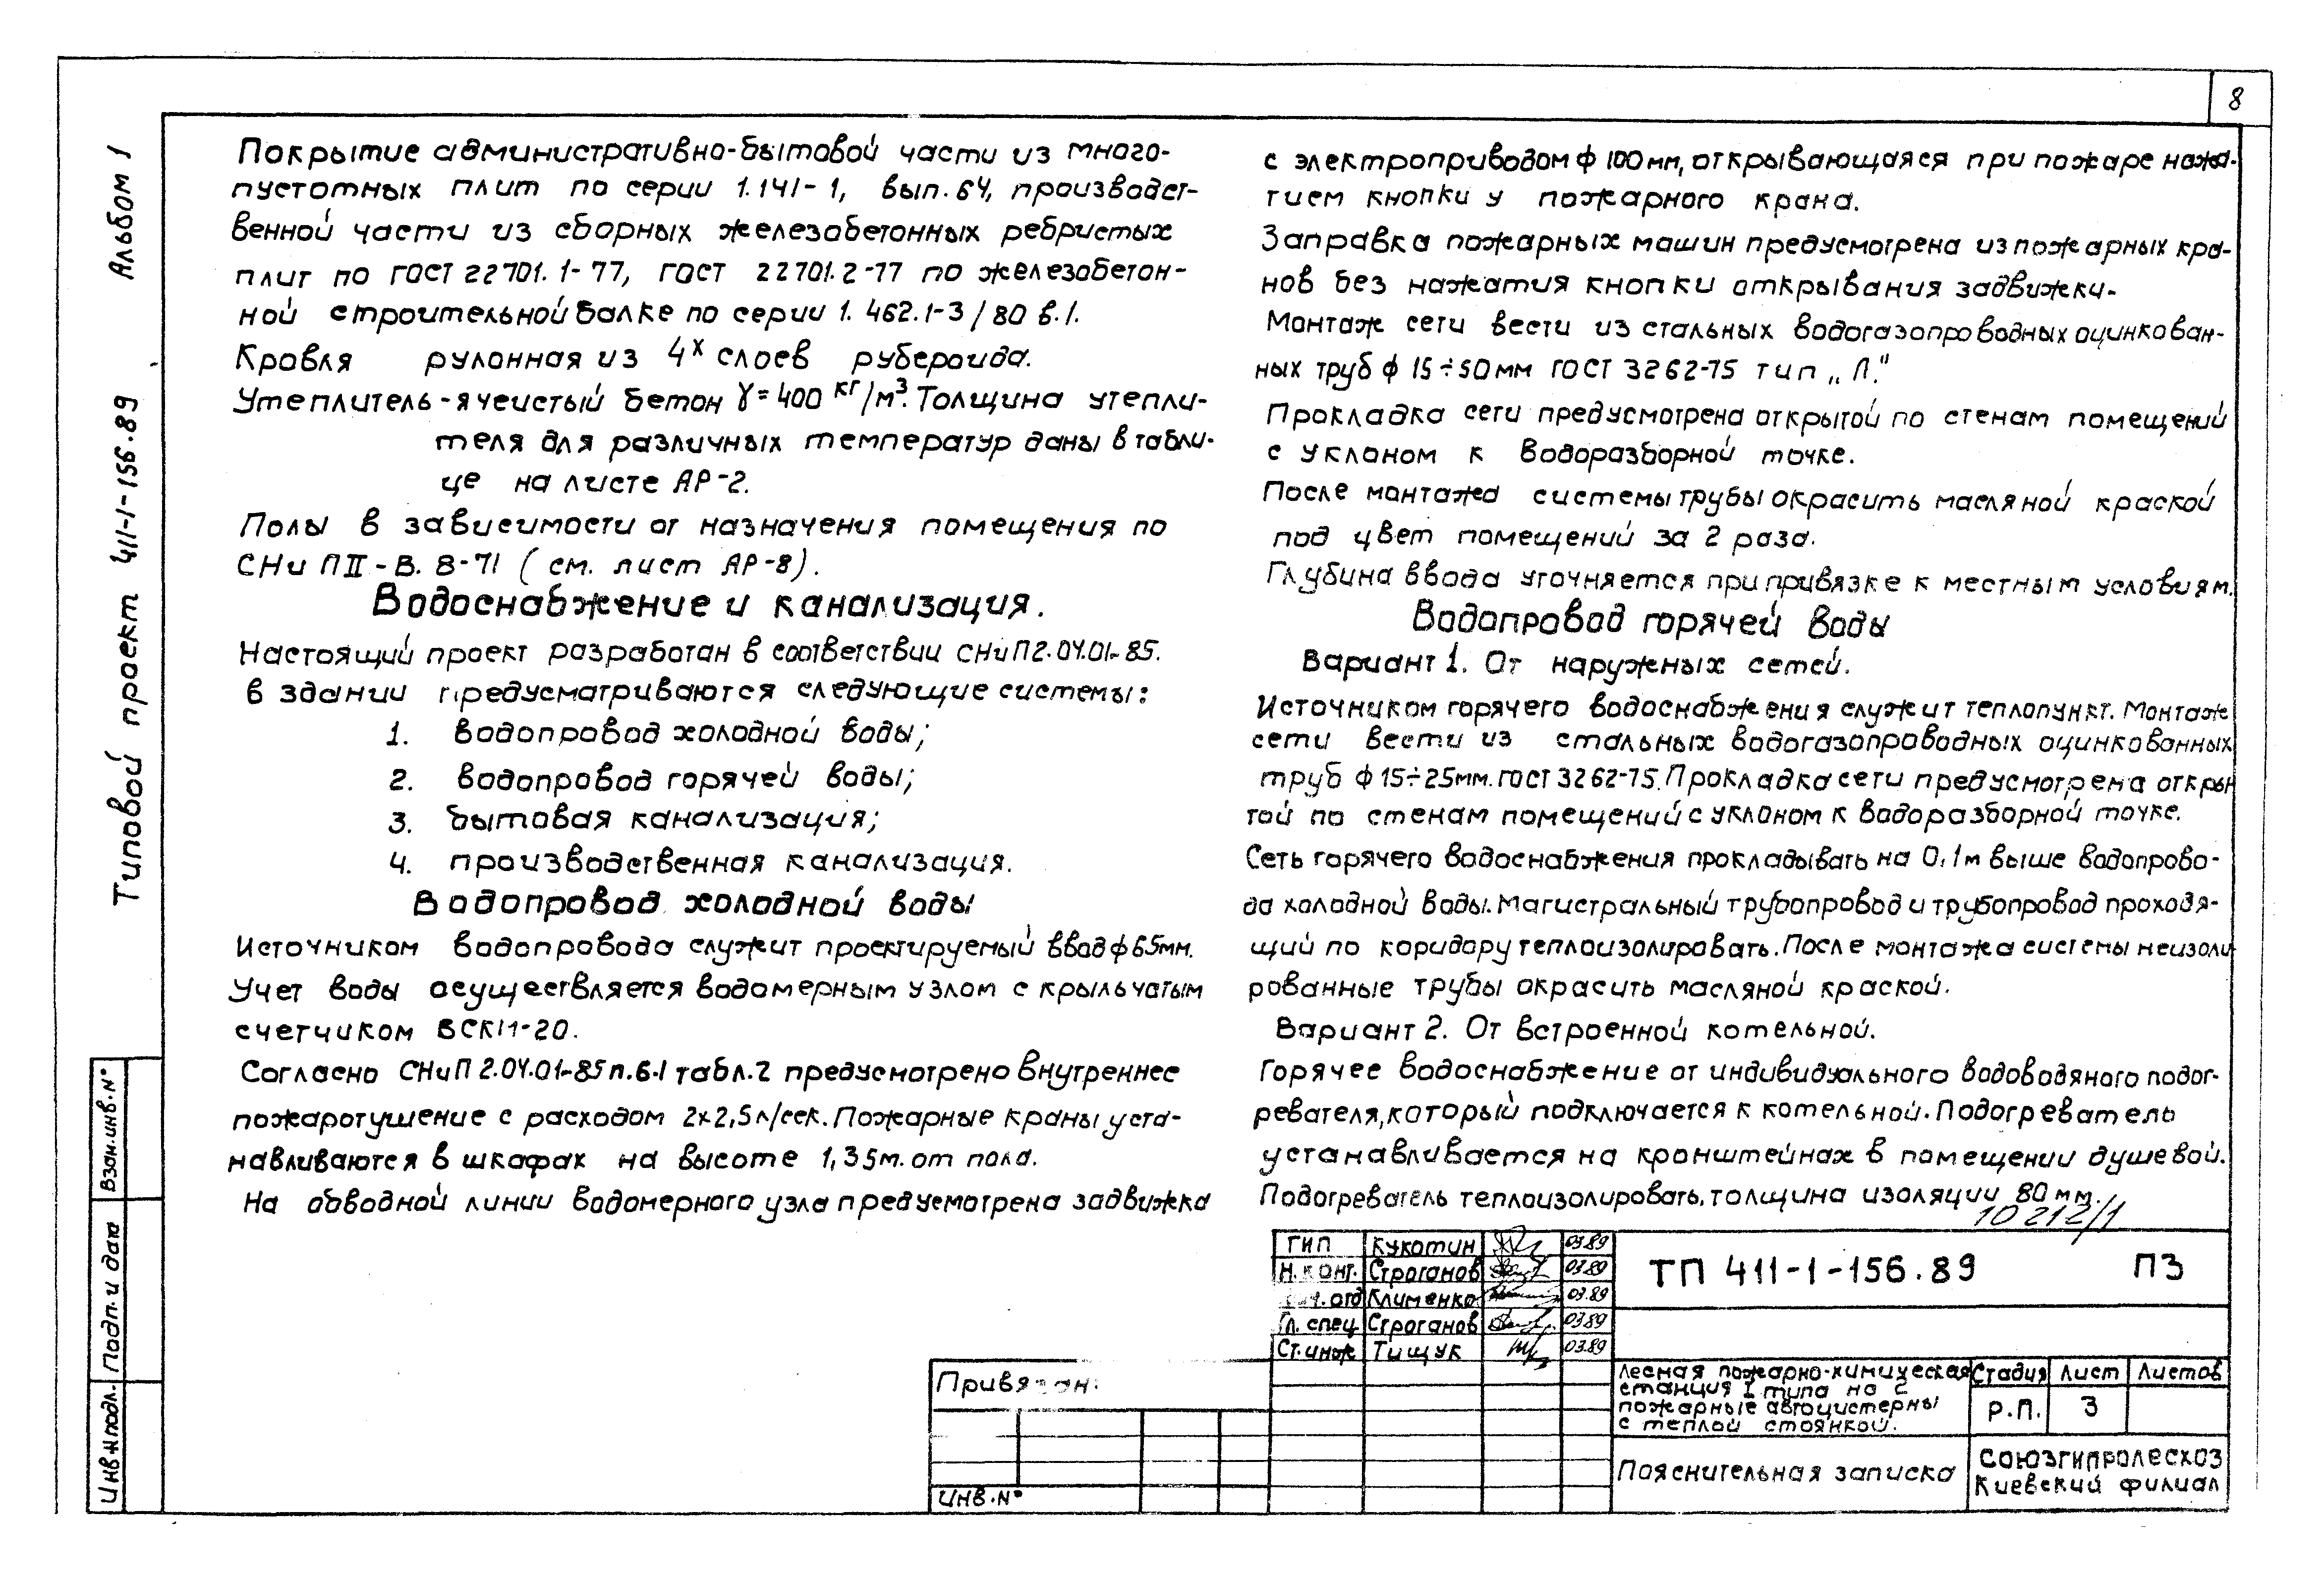 8
Альбом 1
Типовой проект 411-1-156.89
Покрытие административно-бытовой части из много-
пустотных плит по серии 1.141-1, вып. 64, производст-
венной части из сборных железобетонных ребристых
плит по ГОСТ 22701.1-77, ГОСТ 22701.2-77 по железобетон-
ной строительной балке по серии 1.462.1-3/80 в.1.
Кровля рулонная из 4х слоев рубероида.
Утеплитель - ячеистый бетон γ=400 кг/м³. Толщина утепли-
теля для различных температур даны в табли-
це на листе АР-2.
Полы в зависимости от назначения помещения по
СНиП II-В. 8-71 (см. лист АР-8).
Водоснабжение и канализация.
Настоящий проект разработан в соответствии СНиП 2.04.01-85.
в здании предусматриваются следующие системы:
1. водопровод холодной воды;
2. водопровод горячей воды;
3. бытовая канализация;
4. производственная канализация.
Водопровод холодной воды
Источником водопровода служит проектируемый ввод ф 65мм.
Учет воды осуществляется водомерным узлом с крыльчатым
счетчиком ВСКМ-20.
Согласно СНиП 2.04.01-85 п.6.1 табл.2 предусмотрено внутреннее
пожаротушение с расходом 2х2,5л/сек. Пожарные краны уста-
навливаются в шкафах на высоте 1,35м. от пола.
На обводной линии водомерного узла предусмотрена задвижка
с электроприводом ф 100мм, открывающаяся при пожаре нажа-
тием кнопки у пожарного крана.
Заправка пожарных машин предусмотрена из пожарных кра-
нов без нажатия кнопки открывания задвижки.
Монтаж сети вести из стальных водогазопроводных оцинкован-
ных труб ф 15÷50мм ГОСТ 3262-75 тип „Л."
Прокладка сети предусмотрена открытой по стенам помещений
с уклоном к водоразборной точке.
После монтажа системы трубы окрасить масляной краской
под цвет помещений за 2 раза.
Глубина ввода уточняется при привязке к местным условиям.
Водопровод горячей воды
Вариант 1. От наружных сетей.
Источником горячего водоснабжения служит теплопункт. Монтаж
сети вести из стальных водогазопроводных оцинкованных
труб ф 15÷25мм. ГОСТ 3262-75. Прокладка сети предусмотрена откры
той по стенам помещений с уклоном к водоразборной точке.
Сеть горячего водоснабжения прокладывать на 0,1м выше водопрово-
да холодной воды. Магистральный трубопровод и трубопровод проходя-
щий по коридору теплоизолировать. После монтажа системы неизоли
рованные трубы окрасить масляной краской.
Вариант 2. От встроенной котельной.
Горячее водоснабжение от индивидуального водоводяного подог-
ревателя, который подключается к котельной. Подогреватель
устанавливается на кронштейнах в помещении душевой.
Подогреватель теплоизолировать, толщина изоляции 80 мм.
10212/1
Взам.инв.N°
Подп. и дата
Инв.N подл.
ГИП Кукотин 03.89
Н.конт. Строганов 03.89
отд Клименко 03.89
Гл. спец Строганов 03.89
Ст. инж Тищук 03.89
ТП 411-1-156.89 ПЗ
Лесная пожарно-химическая
станция I типа на 2
пожарные автоцистерны
с теплой стоянкой.
Стадия Лист Листов
Р.П. 3
Пояснительная записка
СОЮЗГИПРОЛЕСХОЗ
Киевский филиал
Привязан:
ИНВ.N°